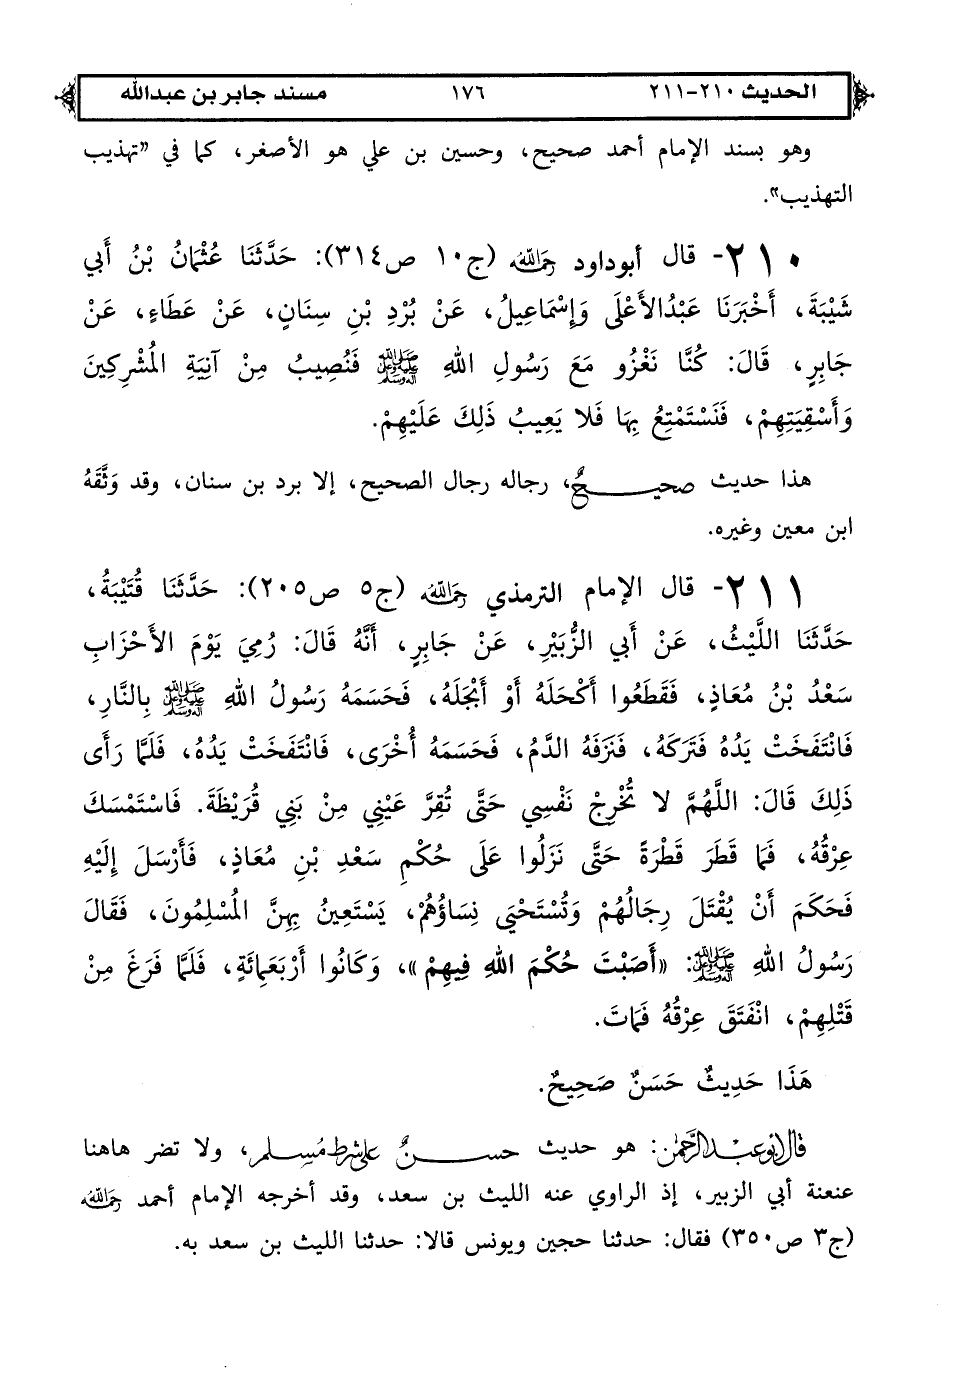 الحديث ٢١٠-٢١١ ١٧٦ مسند جابر بن عبدالله
وهو بسند الإمام أحمد صحيح، وحسين بن علي هو الأصغر، كما في "تهذيب
التهذيب".
٢١٠- قال أبوداود رحمه الله (ج١٠ ص٣١٤): حَدَّثَنَا عُثْمَانُ بْنُ أَبي
شَيْبَةَ، أَخْبَرَنَا عَبْدُالأَعْلَى وَإِسْمَاعِيلُ، عَنْ بُرْدِ بْنِ سِنَانٍ، عَنْ عَطَاءٍ، عَنْ
جَابِرٍ، قَالَ: كُنَّا نَغْزُو مَعَ رَسُولِ اللهِ ﷺ فَنُصِيبُ مِنْ آنِيَةِ الْمُشْرِكِينَ
وَأَسْقِيَتِهِمْ، فَنَسْتَمْتِعُ بِهَا فَلا يَعِيبُ ذَلِكَ عَلَيْهِمْ.
هذا حديث صحيحٌ، رجاله رجال الصحيح، إلا برد بن سنان، وقد وَثَّقَهُ
ابن معين وغيره.
٢١١- قال الإمام الترمذي رحمه الله (ج٥ ص٢٠٥): حَدَّثَنَا قُتَيْبَةُ،
حَدَّثَنَا اللَّيْثُ، عَنْ أَبي الزُّبَيْرِ، عَنْ جَابِرٍ، أَنَّهُ قَالَ: رُمِيَ يَوْمَ الأَحْزَابِ
سَعْدُ بْنُ مُعَاذٍ، فَقَطَعُوا أَكْحَلَهُ أَوْ أَبْجَلَهُ، فَحَسَمَهُ رَسُولُ اللهِ ﷺ بِالنَّارِ،
فَانْتَفَخَتْ يَدُهُ فَتَرَكَهُ، فَنَزَفَهُ الدَّمُ، فَحَسَمَهُ أُخْرَى، فَانْتَفَخَتْ يَدُهُ، فَلَمَّا رَأَى
ذَلِكَ قَالَ: اللَّهُمَّ لا تُخْرِجْ نَفْسِي حَتَّى تُقِرَّ عَيْنِي مِنْ بَنِي قُرَيْظَةَ. فَاسْتَمْسَكَ
عِرْقُهُ، فَمَا قَطَرَ قَطْرَةً حَتَّى نَزَلُوا عَلَى حُكْمِ سَعْدِ بْنِ مُعَاذٍ، فَأَرْسَلَ إِلَيْهِ
فَحَكَمَ أَنْ يُقْتَلَ رِجَالُهُمْ وَتُسْتَحْيَى نِسَاؤُهُمْ، يَسْتَعِينُ بِهِنَّ الْمُسْلِمُونَ، فَقَالَ
رَسُولُ اللهِ ﷺ: «أَصَبْتَ حُكْمَ اللهِ فِيهِمْ»، وَكَانُوا أَرْبَعَمِائَةٍ، فَلَمَّا فَرَغَ مِنْ
قَتْلِهِمْ، انْفَتَقَ عِرْقُهُ فَمَاتَ.
هَذَا حَدِيثٌ حَسَنٌ صَحِيحٌ.
قال أبو عبد الرحمن: هو حديث حسنٌ على شرط مُسلم، ولا تضر هاهنا
عنعنة أبي الزبير، إذ الراوي عنه الليث بن سعد، وقد أخرجه الإمام أحمد رحمه الله
(ج٣ ص٣٥٠) فقال: حدثنا حجين ويونس قالا: حدثنا الليث بن سعد به.